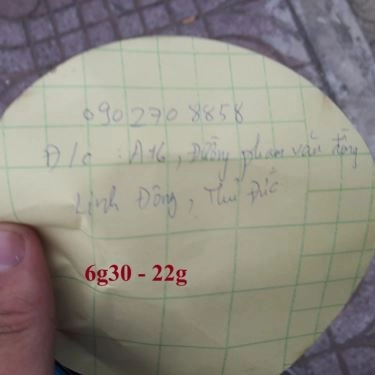 0902708858
Đ/c : A16, Đường phạm văn đồng
Linh Đông, Thủ Đức
6g30 - 22g